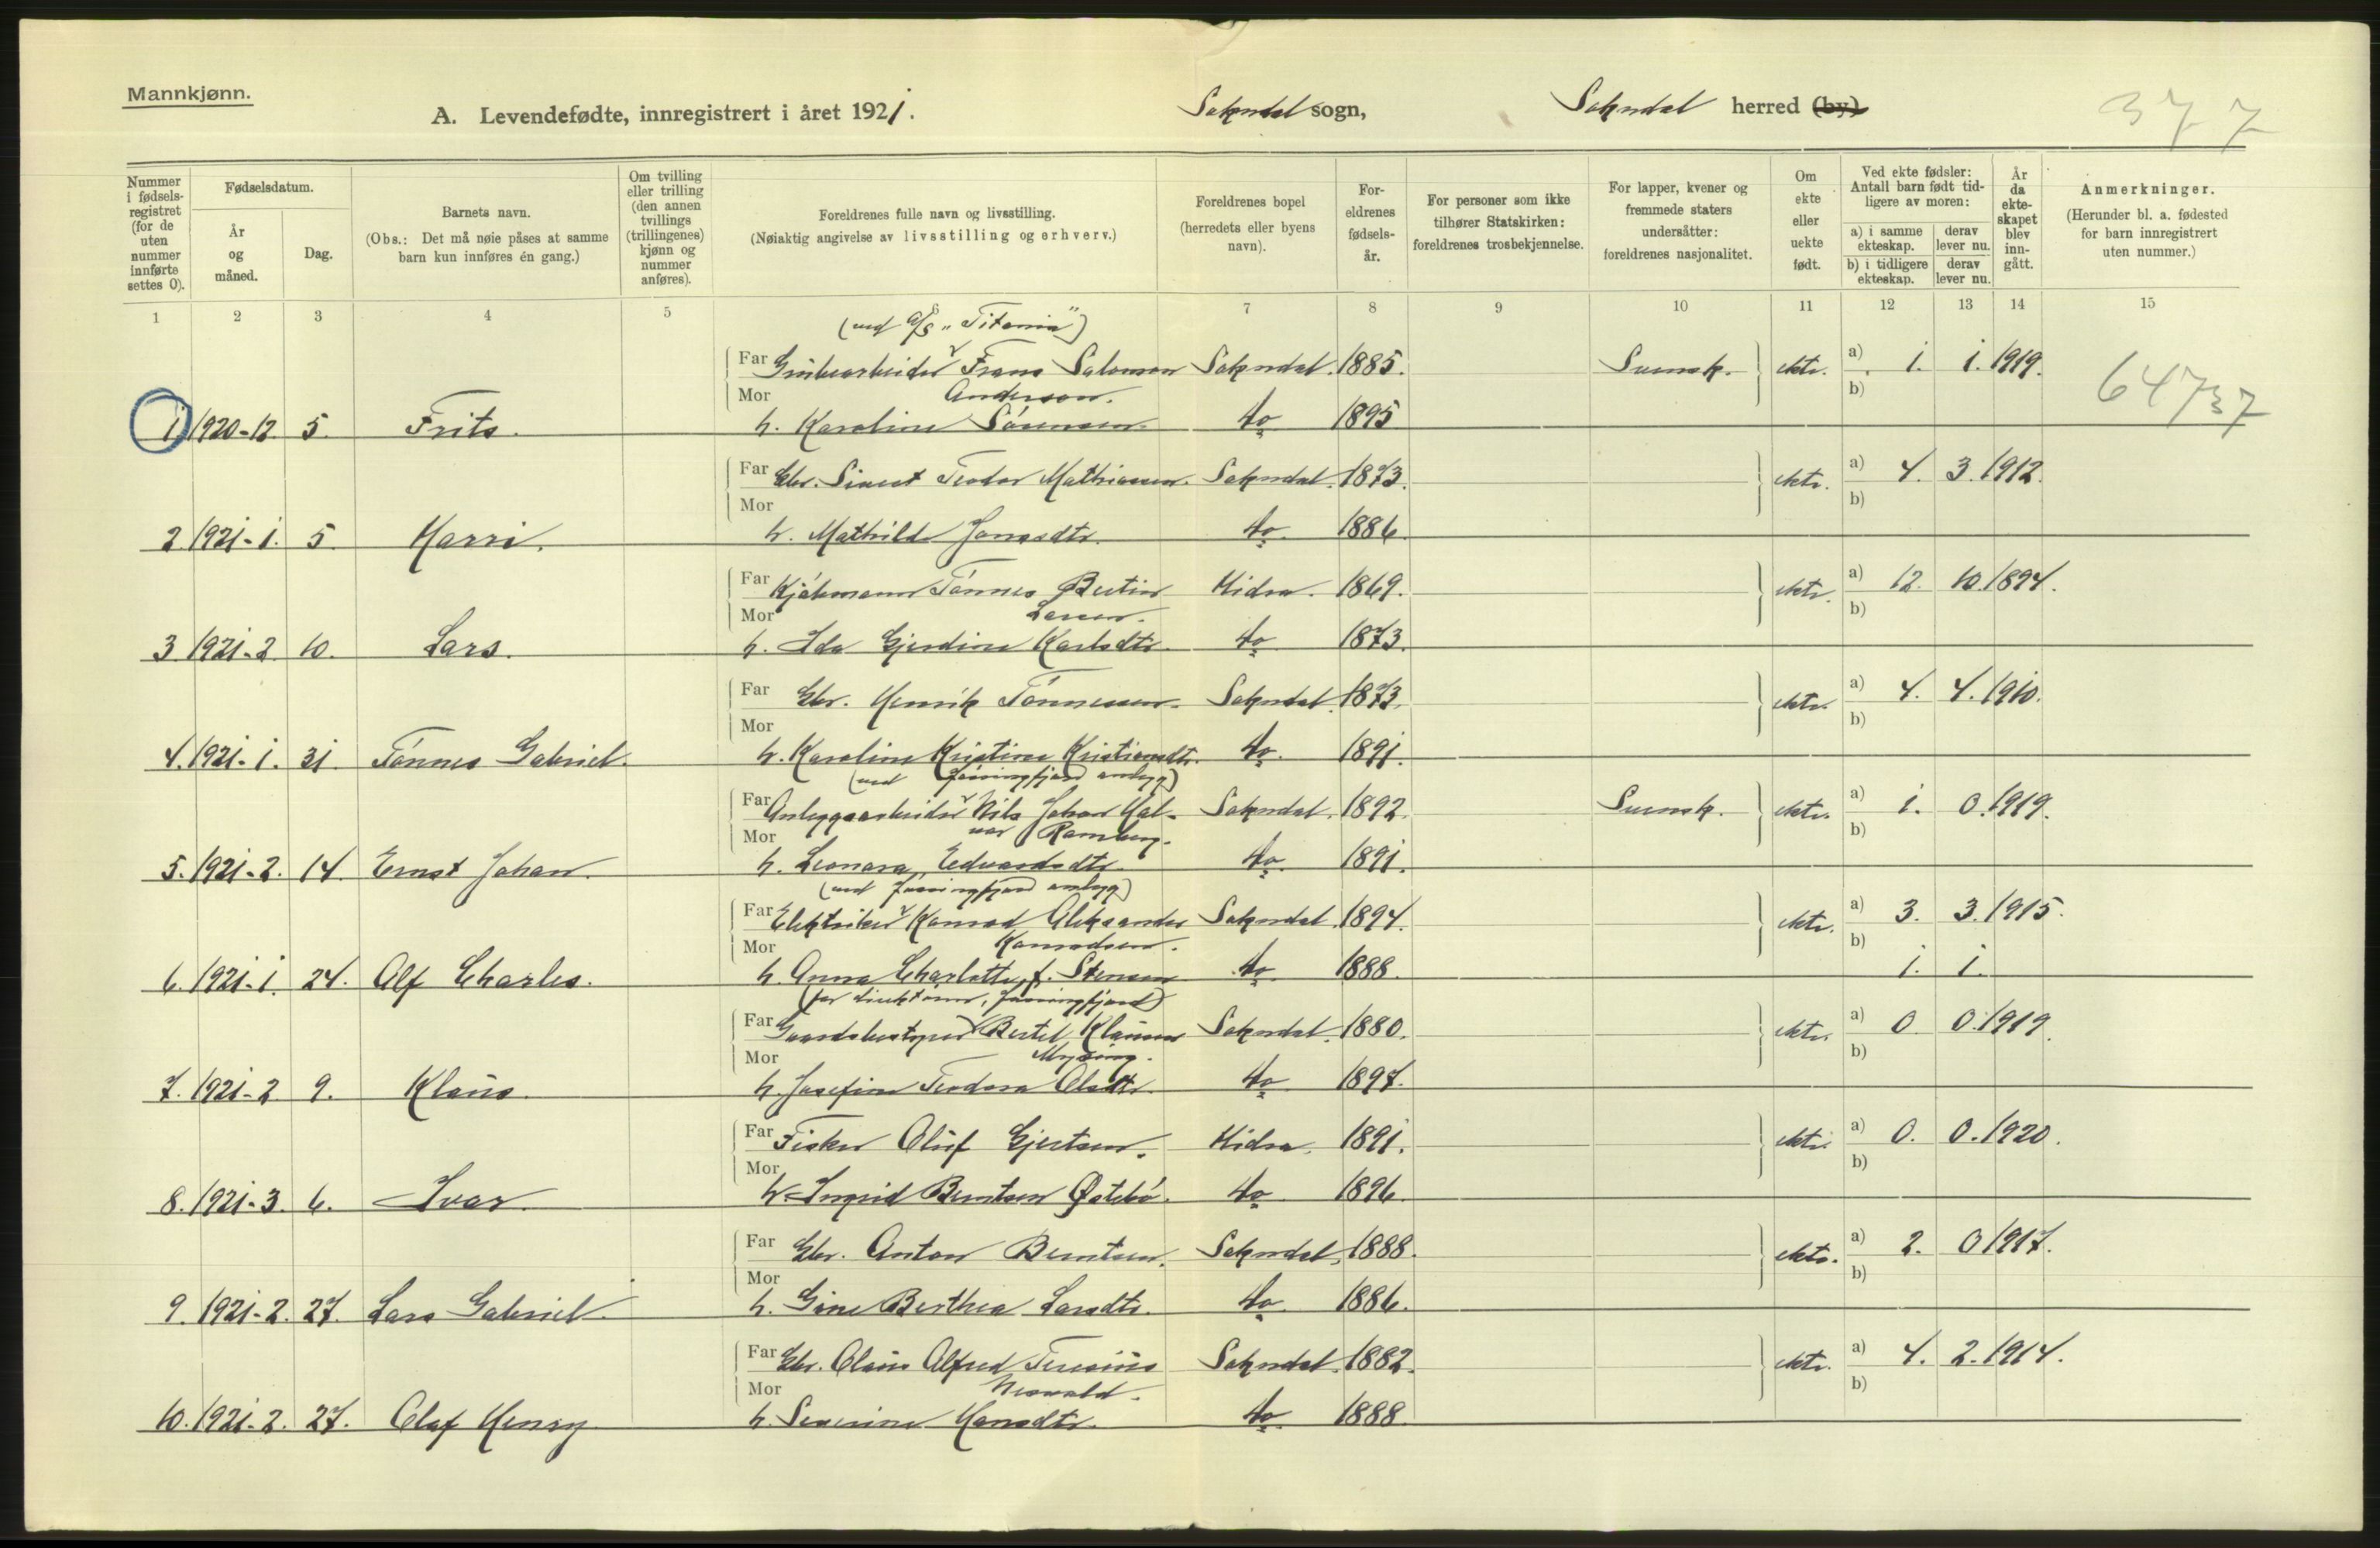 Mannkjønn.
A. Levendefødte, innregistrert i året 1921. Sokndal sogn, Sokndal herred (by)
377
Nummer i fødselsregistret (for de uten nummer innførte settes 0).
Fødselsdatum.
År og måned.
Dag.
Barnets navn.
(Obs.: Det må nøie påses at samme barn kun innføres én gang.)
Om tvilling eller trilling (den annen tvillings (trillingenes) kjønn og nummer anføres).
Foreldrenes fulle navn og livsstilling.
(Nøiaktig angivelse av livsstilling og erhverv.)
Foreldrenes bopel (herredets eller byens navn).
Foreldrenes fødselsår.
For personer som ikke tilhører Statskirken: foreldrenes trosbekjennelse.
For lapper, kvener og fremmede staters undersåtter: foreldrenes nasjonalitet.
Om ekte eller uekte født.
Ved ekte fødsler: Antall barn født tidligere av moren:
a) i samme ekteskap. derav lever nu.
b) i tidligere ekteskap. derav lever nu.
År da ekteskapet blev inngått.
Anmerkninger.
(Herunder bl. a. fødested for barn innregistrert uten nummer.)
1 2 3 4 5 7 8 9 10 11 12 13 14 15
(ved A/S "Titania")
Far Grubearbeider Frans Salomon Sokndal. 1885. Svensk. ekte. a) 1. 1. 1919.
Mor Anderson. b)
64737
1 1920-12 5. Frits. h. Karoline Sörensen. do 1895
Far Gbr. Sivert Teodor Mathiassen. Sokndal. 1873. ekte. a) 4. 3. 1912.
Mor b)
2. 1921-1. 5. Harri. h. Mathild Jonasdtr. do. 1886.
Far Tönnes Bertin Hidra. 1869. ekte. a) 12. 10. 1894.
Mor Larsen. b)
3. 1921-2. 10. Lars. h. Ida Gjerdine Karlsdtr. do 1873.
Far Gbr. Henrik Tönnessen. Sokndal. 1873. ekte. a) 4. 4. 1910.
Mor b)
4. 1921-1. 31. Tönnes Gabriel. h. Karoline Kristine Kristiansdtr. do. 1891.
(ved Jössingfjord anlegg)
Far Anleggsarbeider Nils Johan Hal- Sokndal. 1892. Svensk. ekte. a) 1. 0. 1919.
Mor var Ramberg. b)
5. 1921-2. 14. Ernst Johan. h. Leonara Edvardsdtr. do. 1891.
(ved Jössingfjord anlegg)
Far Elektriker Konrad Aleksander Sokndal. 1894. ekte. a) 3. 3. 1915.
Mor Konradsen. b)
6. 1921-1. 24. Alf Charles. h. Anna Charlotte, f. Stensen do. 1888. 1. 1.
(for direktörer, Jössingfjord)
Far Gaardsbestyrer Bertel Klausen Sokndal. 1880. ekte. a) 0 0. 1919.
Mor b)
7. 1921-2 9. Klaus. h. Josefine Teodora Olsdtr. do 1897.
Far Fisker Oluf Gjertsen. Hidra. 1891. ekte. a) 0. 0. 1920.
Mor b)
8. 1921-3. 6. Ivar. h. Ingrid Berntsen Östebö. do 1896.
Far Gbr. Anton Berntsen. Sokndal. 1888. ekte. a) 2. 0 1917.
Mor b)
9. 1921-2. 27. Lars Gabriel h. Gine Berthea Larsdtr. do. 1886.
Far Gbr. Olaus Alfred Sokndal. 1882. ekte. a) 4. 2. 1914.
Mor b)
10. 1921-2. 27. Olaf Henry h. Severine Hansdtr. do 1888.